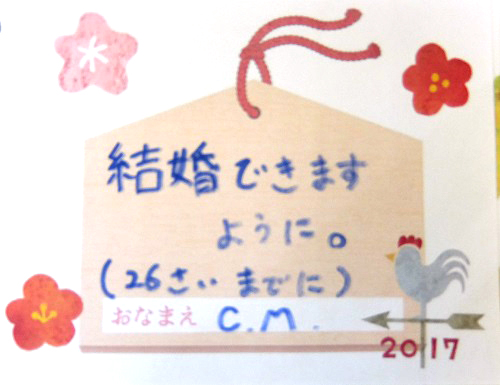 結婚できます
ように。
(26さいまでに)
おなまえ C.M.
2017